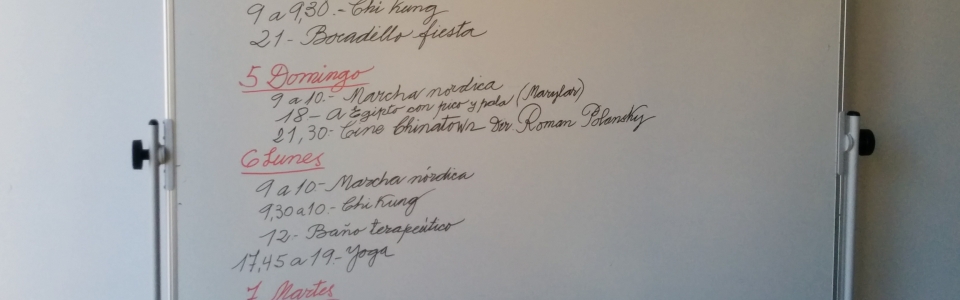 9 a 9,30.- Chi Kung
21- Bocadillo fiesta
5 Domingo
9 a 10.- Marcha nordica
18- a Egipto con pico y pala (Marylar)
21,30- Cine Chinatown Dir Roman Polansky
6 Lunes
9 a 10- Marcha nórdica
9,30 a 10.- Chi Kung
12- Baño terapeútico
17,45 a 19- Yoga
7 Martes